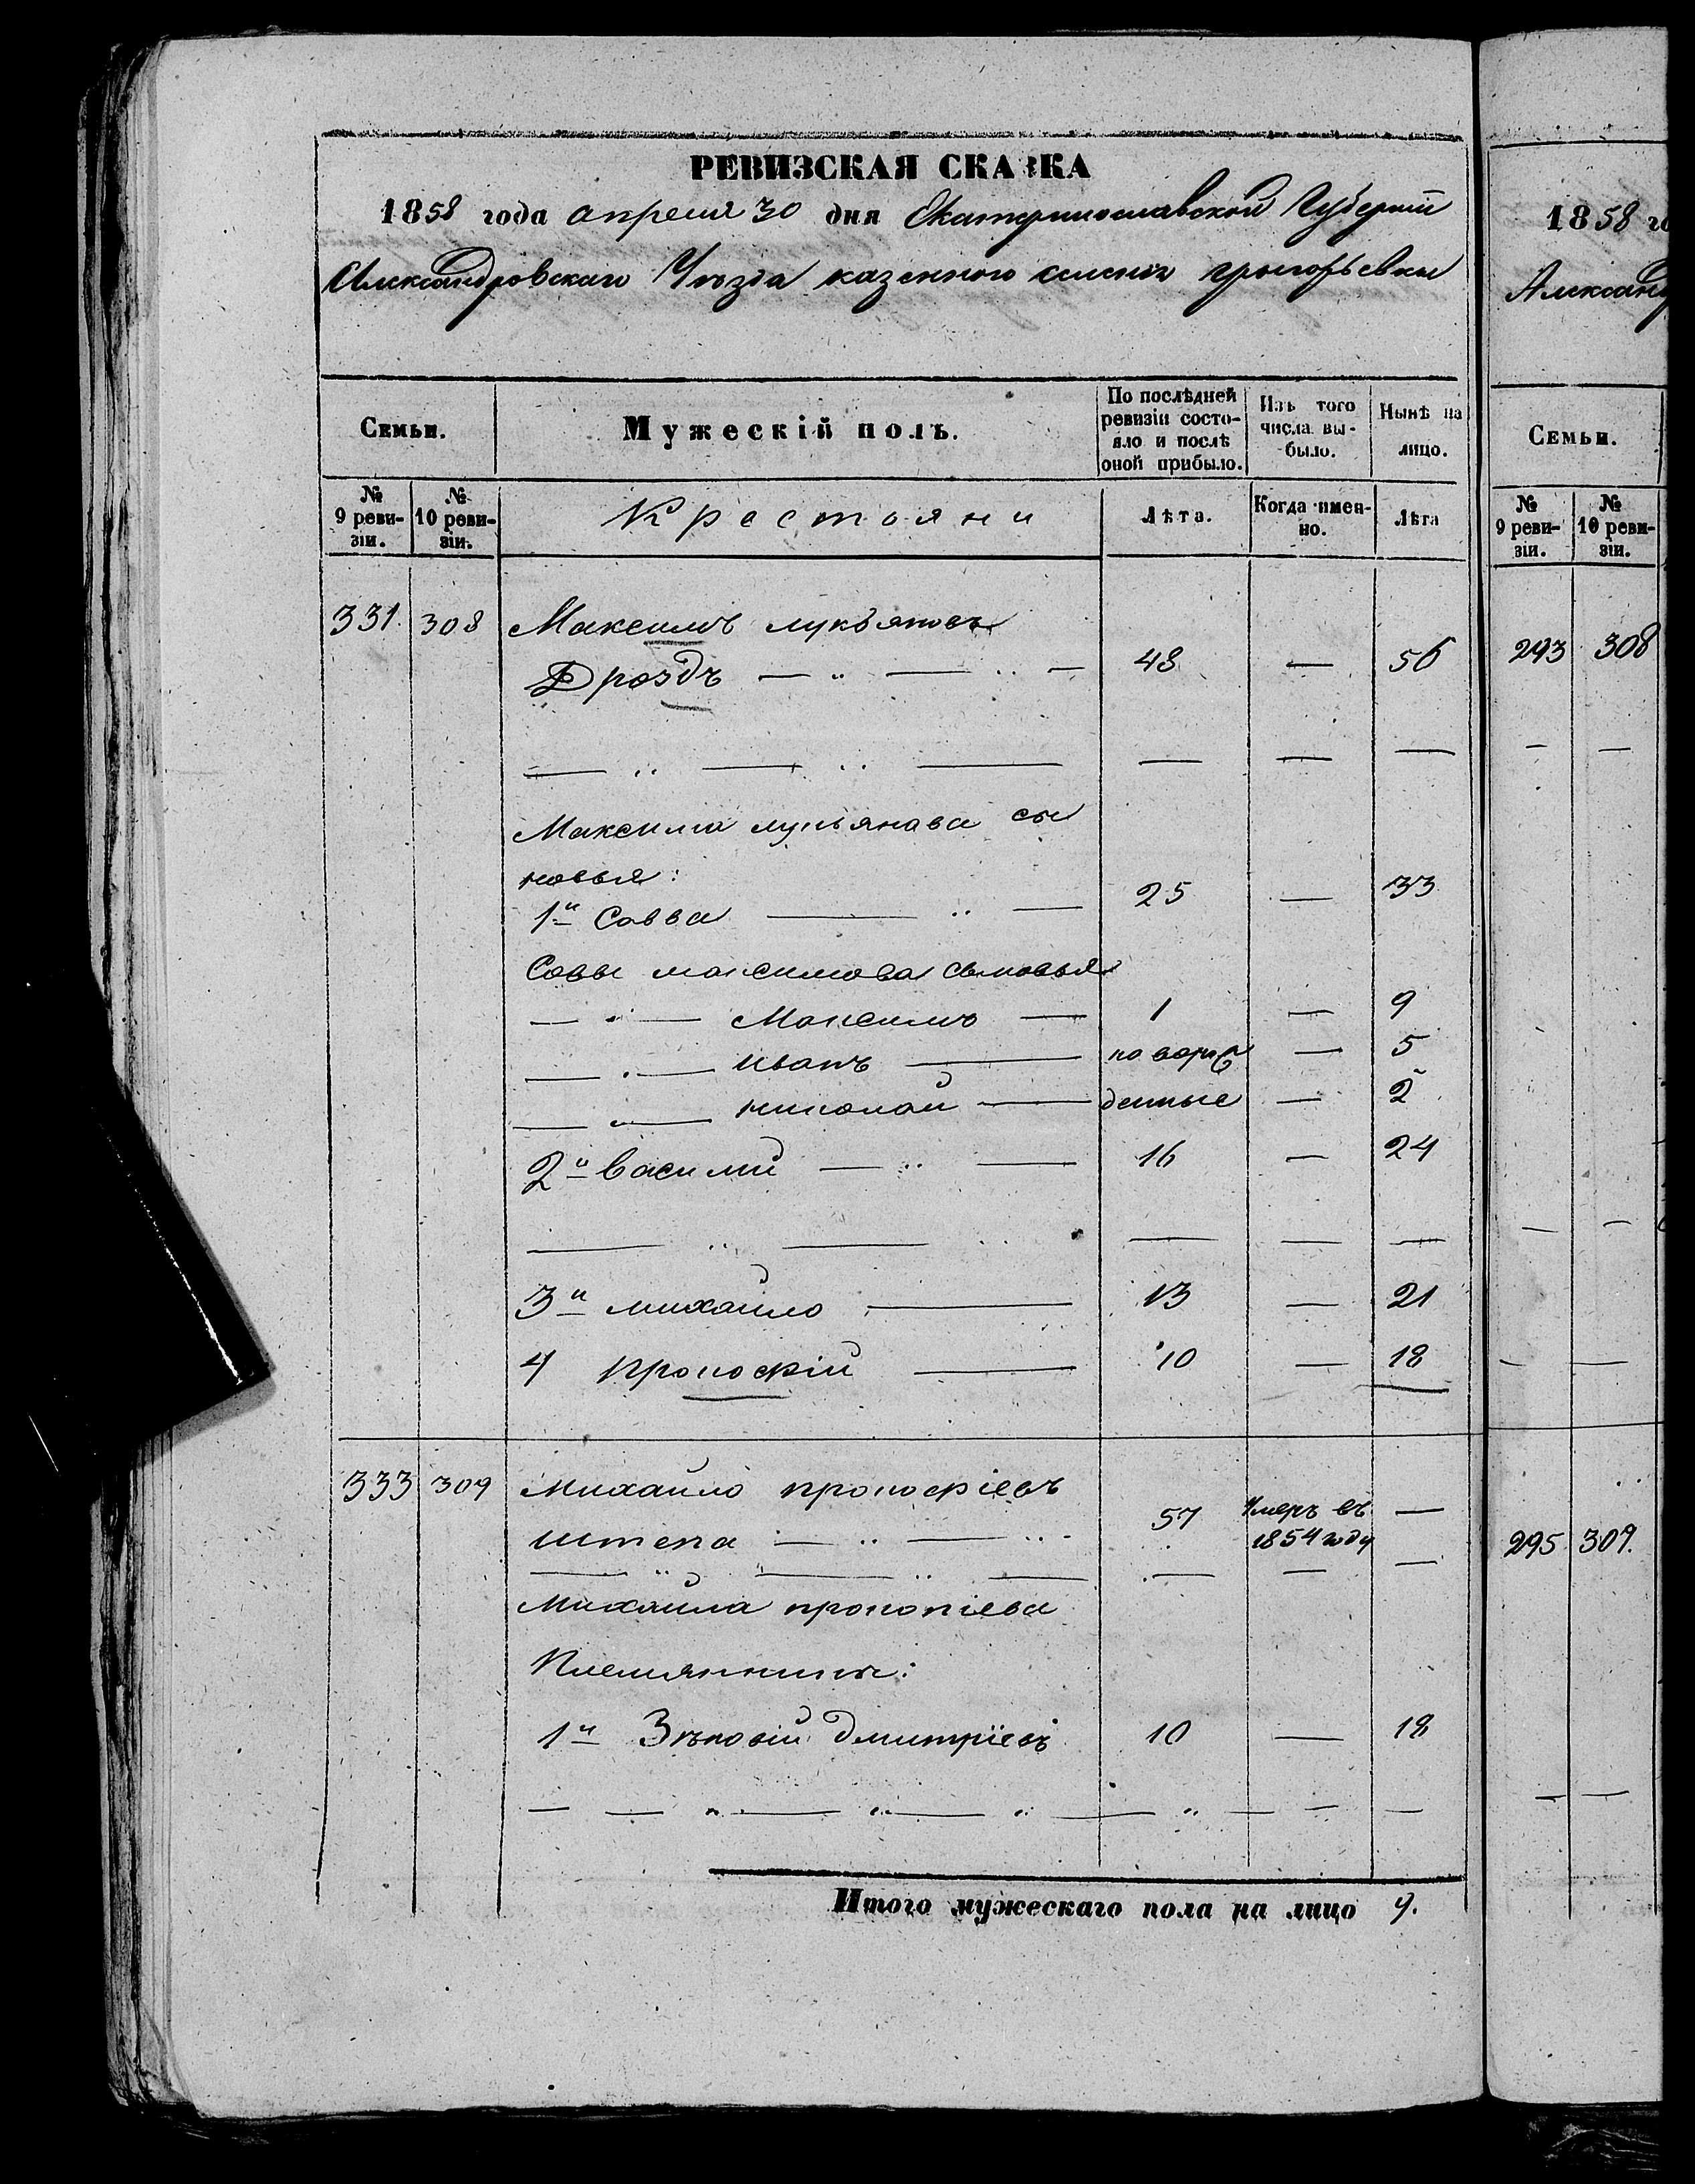 РЕВИЗСКАЯ СКАЗКА
1858 года апреля 30 дня Екатеринославской Губернiи
Александровскаго Уѣзда казенного селения григорьевки
Семьи.
Мужескiй полъ.
По послѣдней ревизiи состо-
яло и послѣ
оной прибыло.
Изъ того
числа вы-
было.
Нынѣ на
лицо.
№
9 реви-
зiи.
№
10 реви-
зiи.
Крестьяни
Лѣта.
Когда имен-
но.
Лѣта
331. 308 Максимъ лукьяновъ
Дроздъ 48 — 56
Максима лукьянова сы
новья:
1й Савва 25 — 33
Савы максимова сыновья
Максимъ 1 — 9
иванъ новорож — 5
николай денные — 2
2й василий 16 — 24
3й михайло 13 — 21
4 прокофiй 10 — 18
333 309 Михайло прокофiевъ
штепа 57 Умеръ въ —
1854 году
Михайла прокопiева
Племянники:
1й Зѣновiй Дмитрiевъ 10 — 18
Итого мужескаго пола на лицо 9.
1858 го
Александ
Семьи.
№
9 реви-
зiи.
№
10 реви-
зiи.
293 308
295 309.